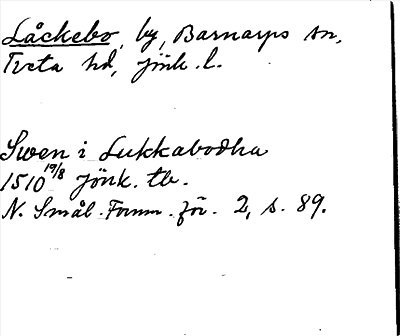 Låckebo, by, Barnarps sn,
Tveta hd, jönk. l.
Swen i Lukkabodha
1510 19/8 jönk. tb.
N. Smål. Fornm. för. 2, s. 89.